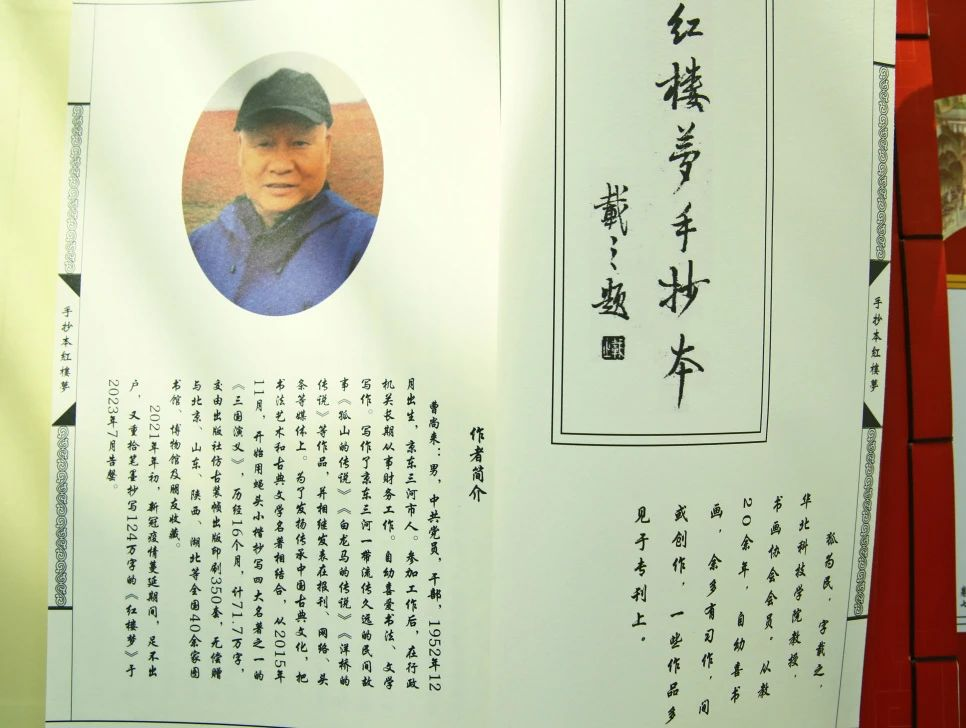 手抄本紅樓夢
红楼梦手抄本
載之题
載之
狐为民，字载之，
华北科技学院教授，
书画协会会员。从教
20余年，自幼喜书
画，余多有习作，间
或创作，一些作品多
见于专刊上。
作者简介
曹尚来：男，中共党员，干部，1952年12
月出生，京东三河市人。参加工作后，在行政
机关长期从事财务工作。自幼喜爱书法、文学
写作。写作了京东三河一带流传久远的民间故
事《狐山的传说》《白龙马的传说》《洋桥的
传说》等作品，并相继发表在报刊、网络、头
条等媒体上。为了发扬传承中国古典文化，把
书法艺术和古典文学名著相结合，从2015年
11月，开始用蝇头小楷抄写四大名著之一的
《三国演义》，历经16个月，计71.7万字，
交由出版社仿古装帧出版印刷350套，无偿赠
与北京、山东、陕西、湖北等全国40余家图
书馆、博物馆及朋友收藏。
2021年年初，新冠疫情蔓延期间，足不出
户，又重拾笔墨抄写124万字的《红楼梦》于
2023年7月告罄。
手抄本紅樓夢